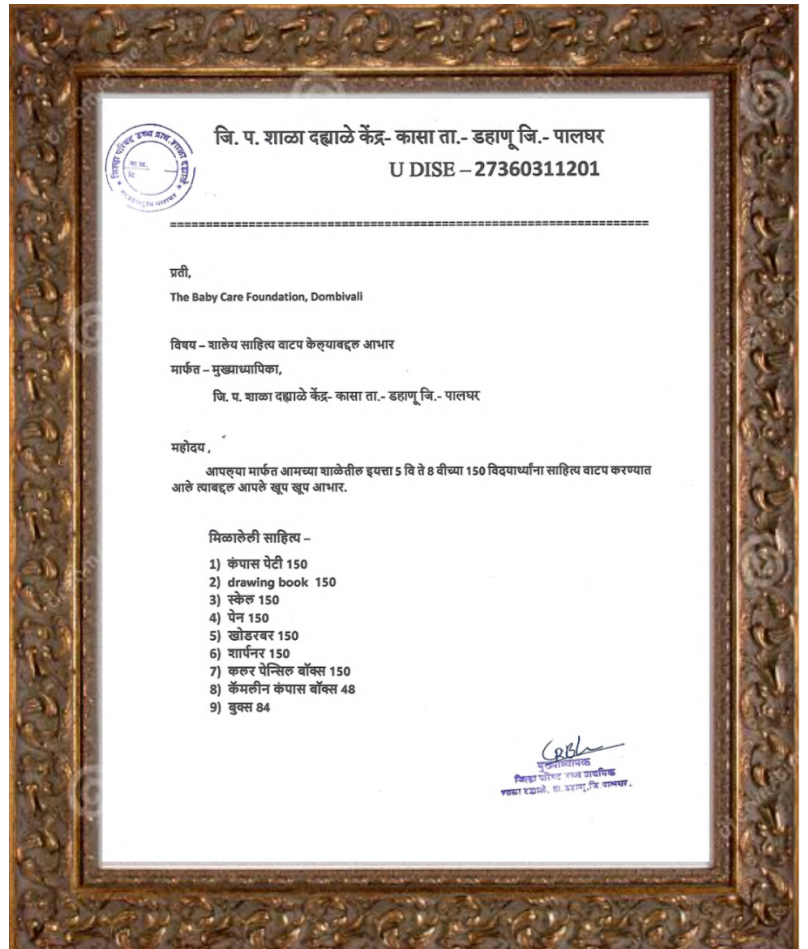 जि. प. शाळा दह्याळे केंद्र- कासा ता.- डहाणू जि.- पालघर
U DISE – 27360311201
प्रती,
The Baby Care Foundation, Dombivali
विषय – शालेय साहित्य वाटप केल्याबद्दल आभार
मार्फत – मुख्याध्यापिका,
जि. प. शाळा दह्याळे केंद्र- कासा ता.- डहाणू जि.- पालघर
महोदय ,
आपल्या मार्फत आमच्या शाळेतील इयत्ता 5 वि ते 8 वीच्या 150 विदयार्थ्यांना साहित्य वाटप करण्यात
आले त्याबद्दल आपले खूप खूप आभार.
मिळालेली साहित्य –
1) कंपास पेटी 150
2) drawing book 150
3) स्केल 150
4) पेन 150
5) खोडरबर 150
6) शार्पनर 150
7) कलर पेन्सिल बॉक्स 150
8) कॅमलीन कंपास बॉक्स 48
9) बुक्स 84
मुख्याध्यापक
जिल्हा परिषद उच्च प्राथमिक
शाळा दह्याळे, ता. डहाणू, जि. पालघर.